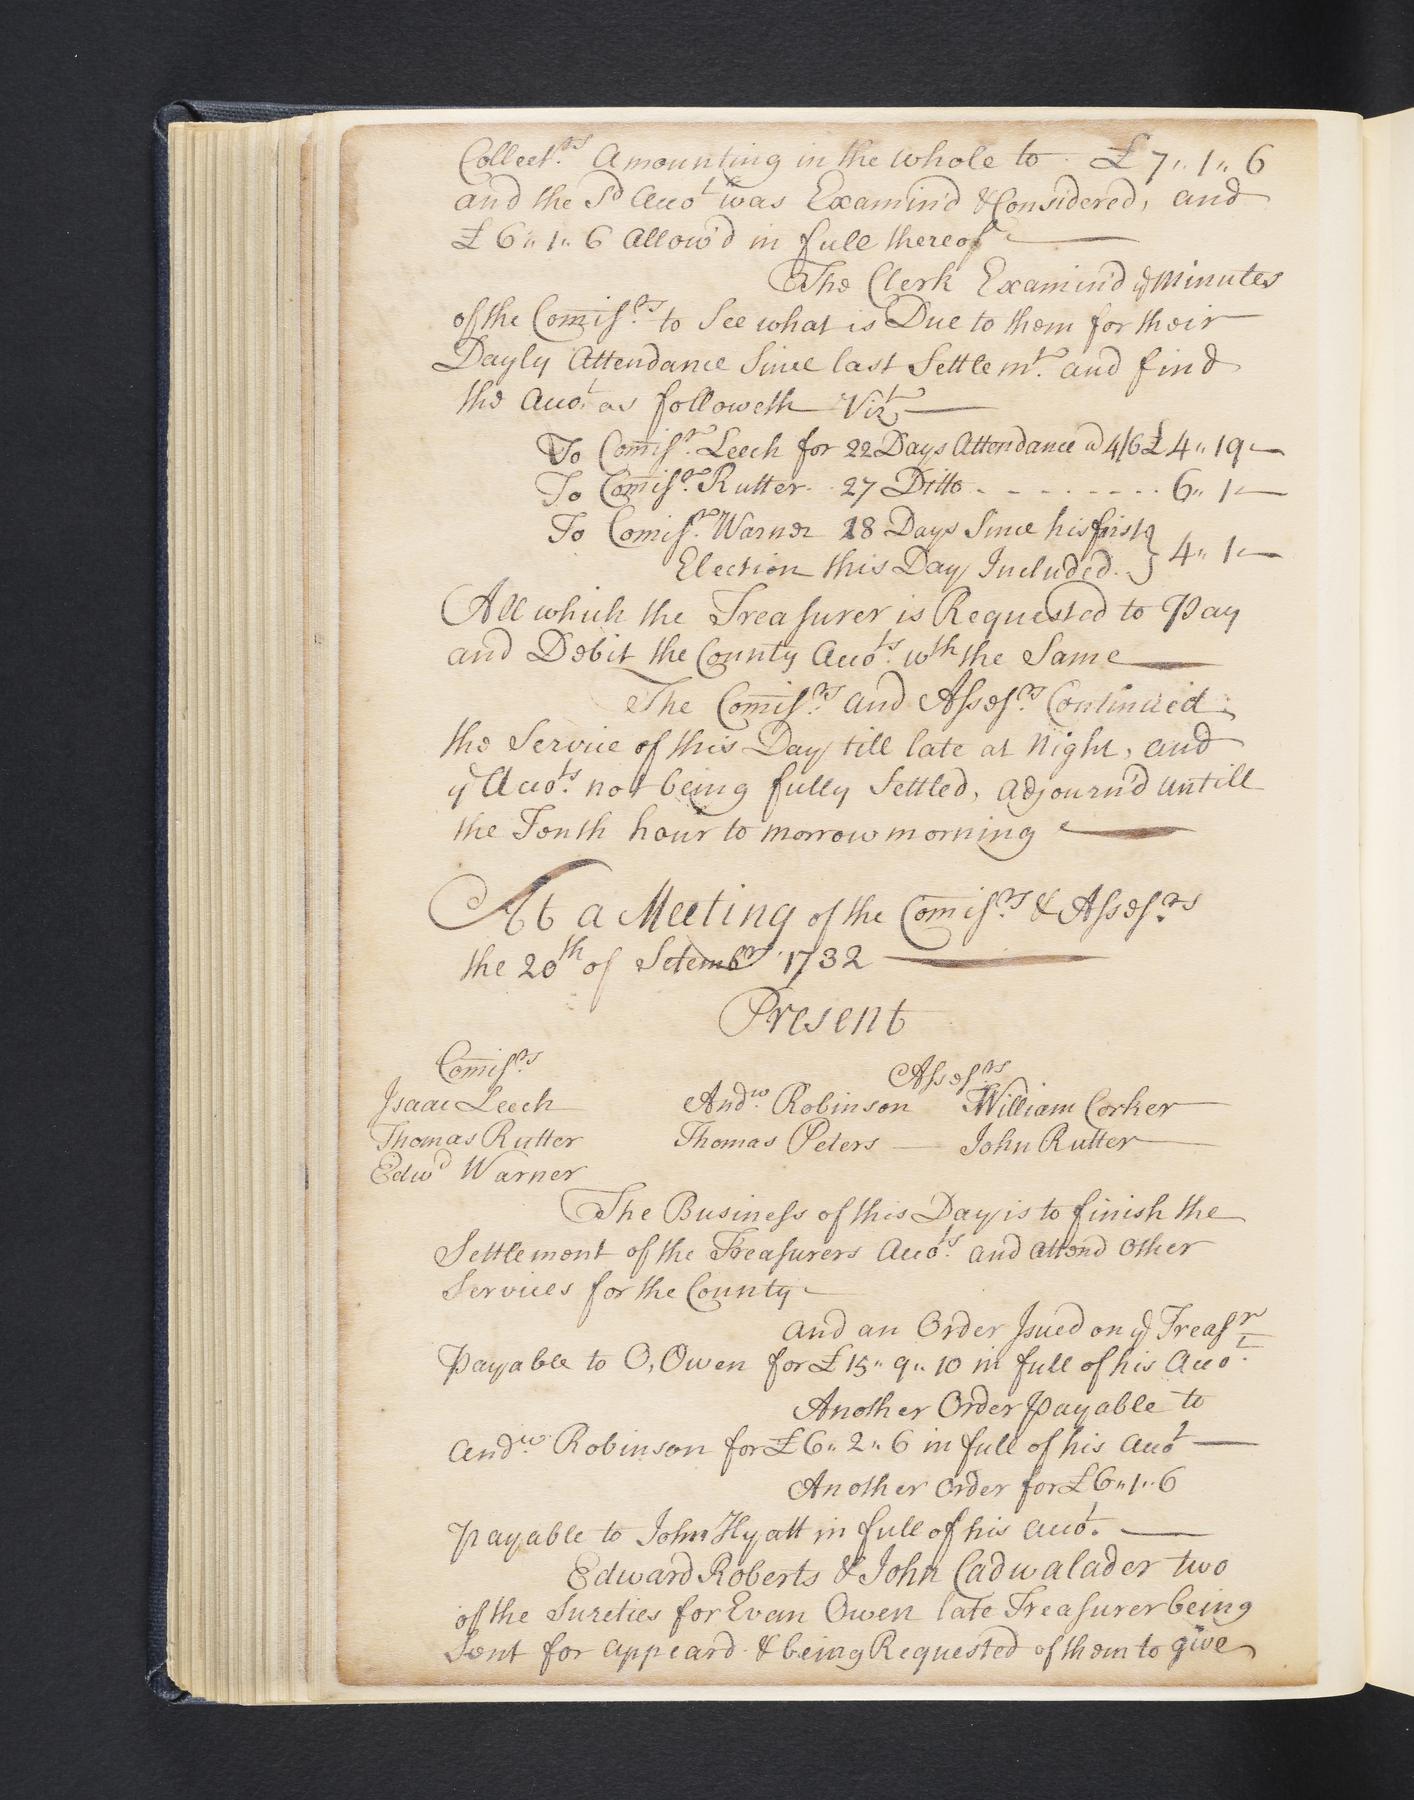 Collect:rs Amounting in the whole to £7"1"6
and the Sd Acco:t was Examin'd & Considered, and
£6"1"6 Allow'd in full thereof
The Clerk Examin'd ye Minutes
of the Comis:rs to See what is Due to them for their
Dayly Attendance Since last Settlem:t and find
the Acco:t as followeth Vizt
To Comis:r Leech for 22 Days Attendance a 4/6 £4"19"
To Comis:r Rutter 27 Ditto 6"1"
To Comis:r Warner 18 Days Since his first } 4"1"
Election this Day Included
All which the Treasurer is Requested to Pay
and Debit the County Acco:ts wth the Same
The Comis:rs and Asses:rs Continued
the Service of this Day till late at Night, and
ye Acco:ts not being fully Settled, Adjourn'd untill
the Tenth hour to morrow morning
At a Meeting of the Comis:rs & Asses:rs
the 20th of Setembr 1732
Present
Comis:rs Asses:rs
Isaac Leech And:w Robinson William Corker
Thomas Rutter Thomas Peters John Rutter
Edwd Warner
The Business of this Day is to finish the
Settlement of the Treasurers Acco:ts and attend other
Services for the County
and an Order Isued on ye Treasr
Payable to O, Owen for £15"9"10 in full of his Acco:t
Another Order Payable to
And:w Robinson for £6"2"6 in full of his Accot
Another Order for £6"1"6
Payable to John Hyatt in full of his Acco:t
Edward Roberts & John Cadwalader two
of the Sureties for Evan Owen late Treasurer being
Sent for appeard & being Requested of them to give